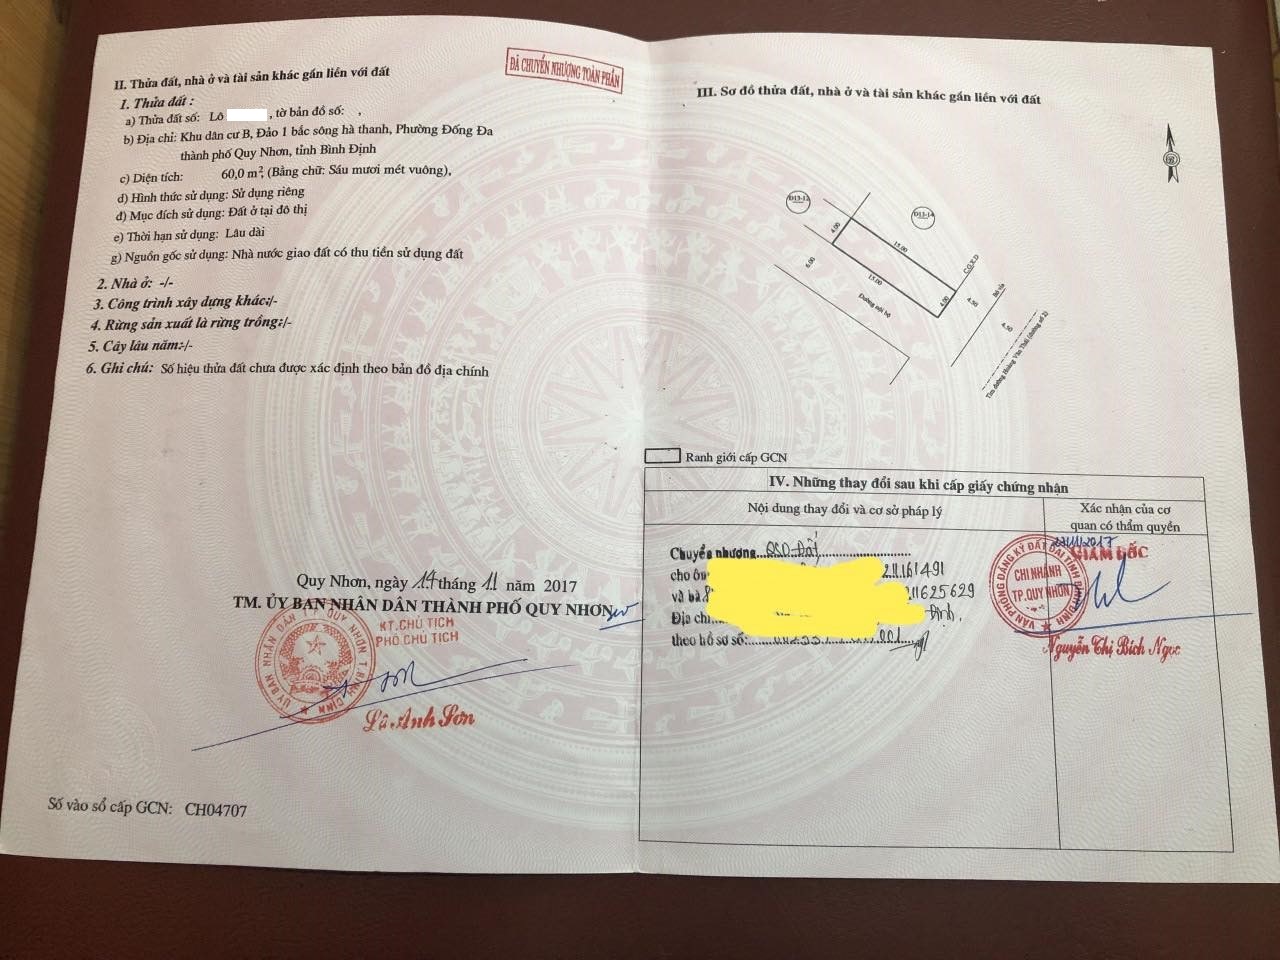 ĐÃ CHUYỂN NHƯỢNG TOÀN PHẦN
II. Thửa đất, nhà ở và tài sản khác gắn liền với đất
1. Thửa đất :
a) Thửa đất số: Lô , tờ bản đồ số: ,
b) Địa chỉ: Khu dân cư B, Đảo 1 bắc sông hà thanh, Phường Đống Đa
thành phố Quy Nhơn, tỉnh Bình Định
c) Diện tích: 60,0 m², (Bằng chữ: Sáu mươi mét vuông),
d) Hình thức sử dụng: Sử dụng riêng
đ) Mục đích sử dụng: Đất ở tại đô thị
e) Thời hạn sử dụng: Lâu dài
g) Nguồn gốc sử dụng: Nhà nước giao đất có thu tiền sử dụng đất
2. Nhà ở: -/-
3. Công trình xây dựng khác:/-
4. Rừng sản xuất là rừng trồng:/-
5. Cây lâu năm:/-
6. Ghi chú: Số hiệu thửa đất chưa được xác định theo bản đồ địa chính
Quy Nhơn, ngày 14 tháng 11 năm 2017
TM. ỦY BAN NHÂN DÂN THÀNH PHỐ QUY NHƠN
KT. CHỦ TỊCH
PHÓ CHỦ TỊCH
ỦY BAN NHÂN DÂN T.P QUY NHƠN T.BÌNH ĐỊNH
Lê Anh Sơn
Số vào sổ cấp GCN: CH04707
III. Sơ đồ thửa đất, nhà ở và tài sản khác gắn liền với đất
Đ13-12
Đ13-14
4.00
15.00
6.00
15.00
4.00
C.G.X.D
Đường nội bộ
4.50
Bó vỉa
4.50
Tim đường Hoàng Văn Thái (đường số 2)
Ranh giới cấp GCN
IV. Những thay đổi sau khi cấp giấy chứng nhận
Nội dung thay đổi và cơ sở pháp lý
Xác nhận của cơ
quan có thẩm quyền
Chuyển nhượng QSD Đất
cho ôn 211161491
và bà 211625629
Địa chỉ Định.
theo hồ sơ số: 001
/11/2017
GIÁM ĐỐC
VĂN PHÒNG ĐĂNG KÝ ĐẤT ĐAI TỈNH BÌNH ĐỊNH
CHI NHÁNH
TP.QUY NHƠN
Nguyễn Thị Bích Ngọc